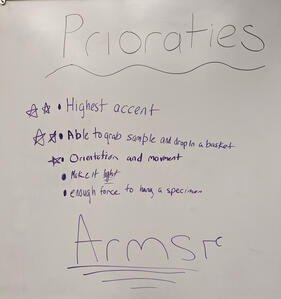 Prioraties
☆☆• Highest accent
☆☆• Able to grab sample and drop in a basket
☆• Orientation and movment
• Make it light
• enough force to hang a specimen
Arms